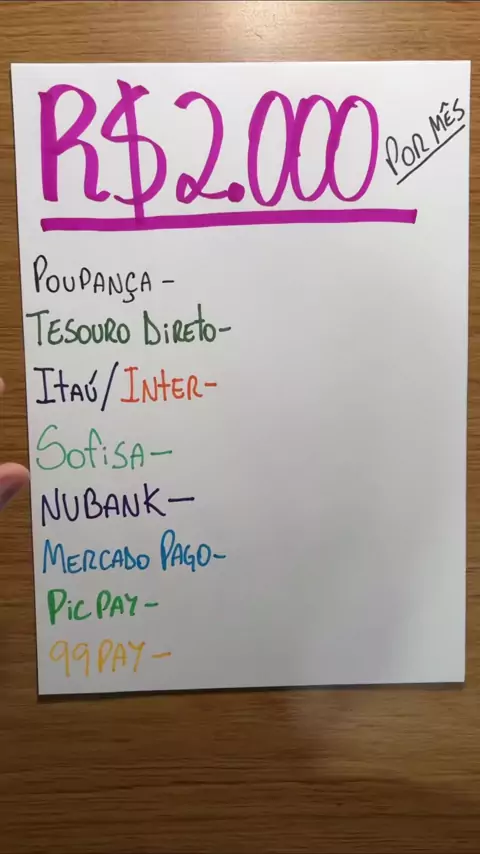 R$2.000
POR MÊS
POUPANÇA -
TESOURO DIRETO-
ITAÚ/INTER-
SOFISA-
NUBANK-
MERCADO PAGO-
PICPAY-
99PAY-